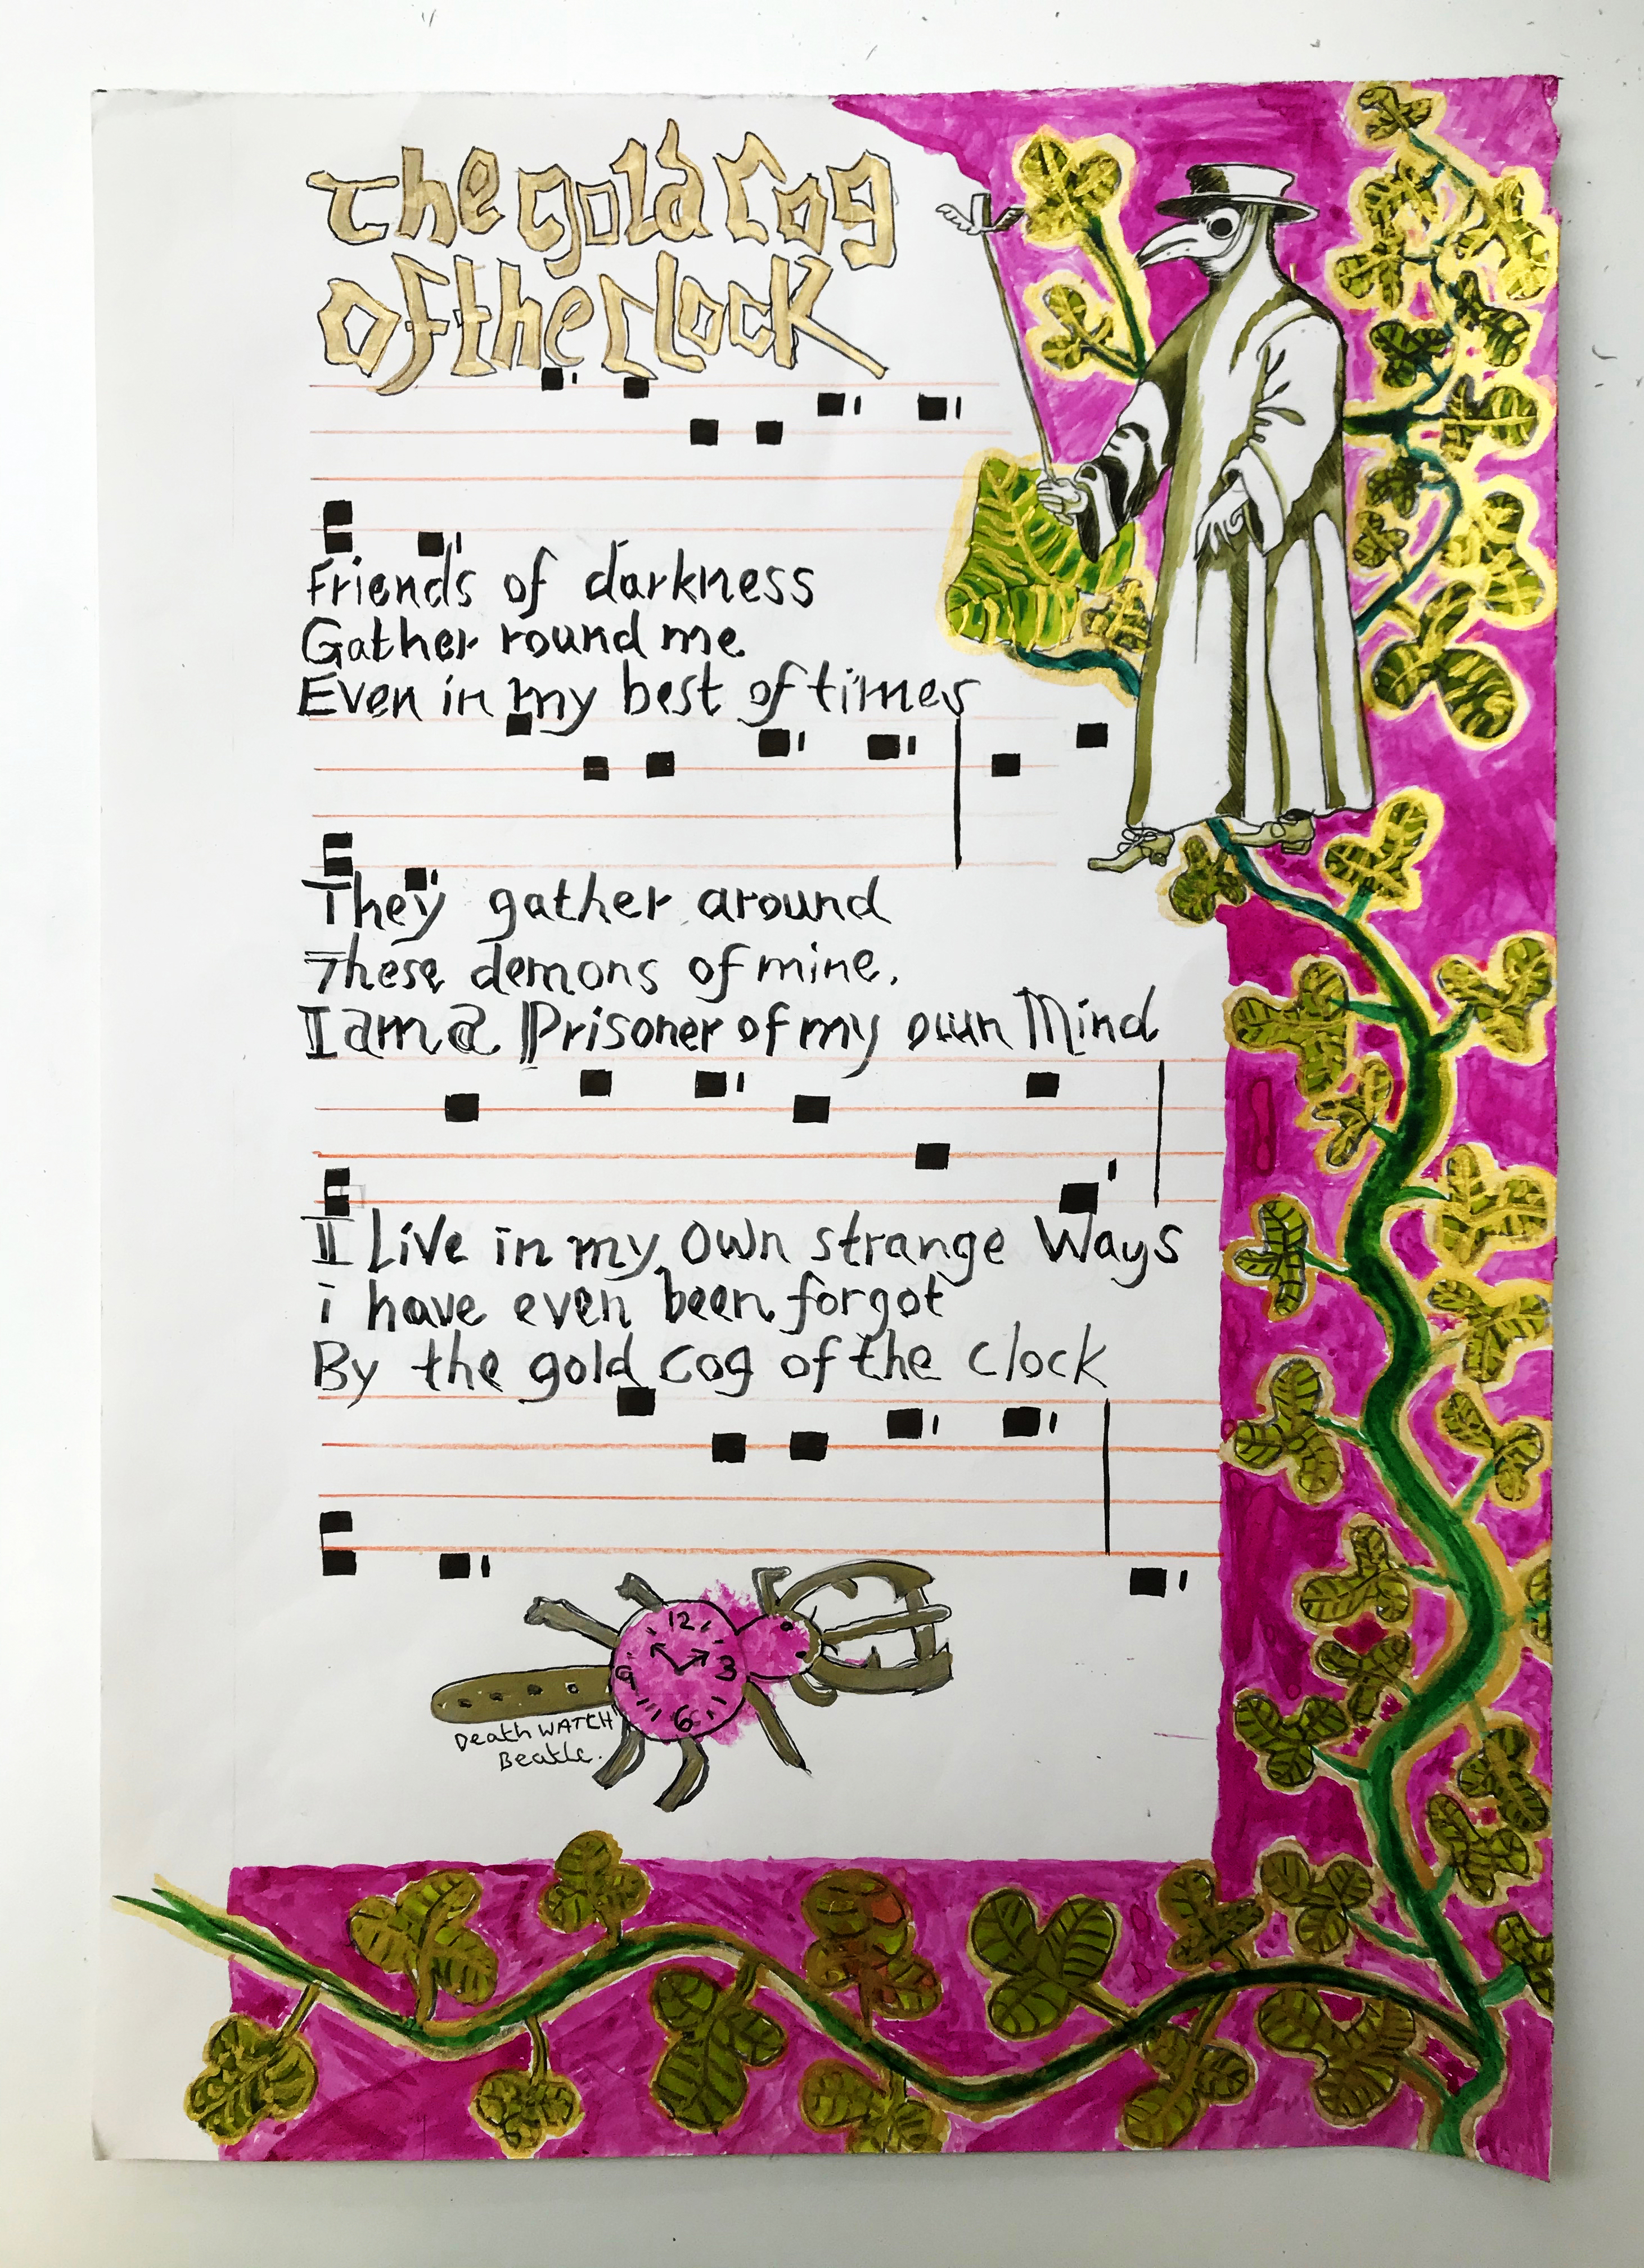 The gold cog
of the clock
Friends of darkness
Gather round me
Even in my best of times
They gather around
These demons of mine.
I am a Prisoner of my own Mind
I Live in my Own strange Ways
i have even been forgot
By the gold cog of the clock
12
9 3
6
Death WATCH
Beatle.